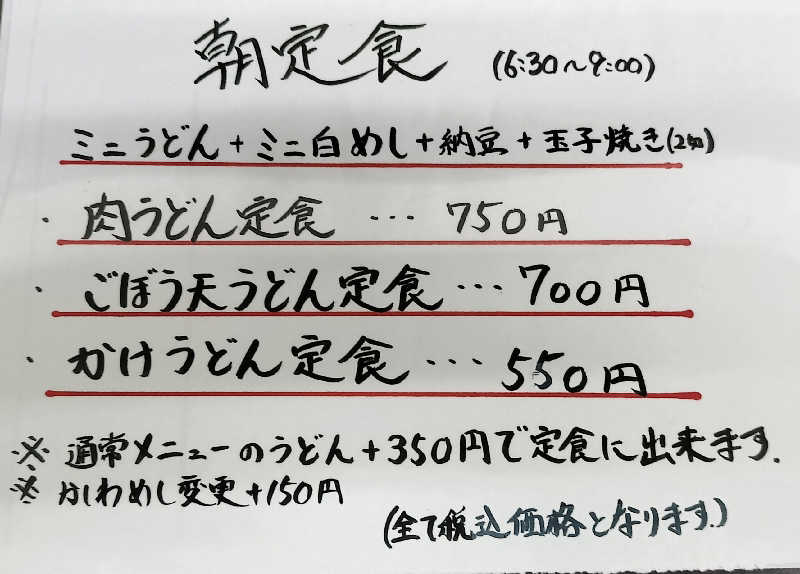 朝定食 (6:30〜9:00)
ミニうどん+ミニ白めし+納豆+玉子焼き(2切)
・肉うどん定食 … 750円
・ごぼう天うどん定食…700円
・かけうどん定食…550円
※ 通常メニューのうどん+350円で定食に出来ます.
※ かしわめし変更+150円
(全て税込価格となります.)